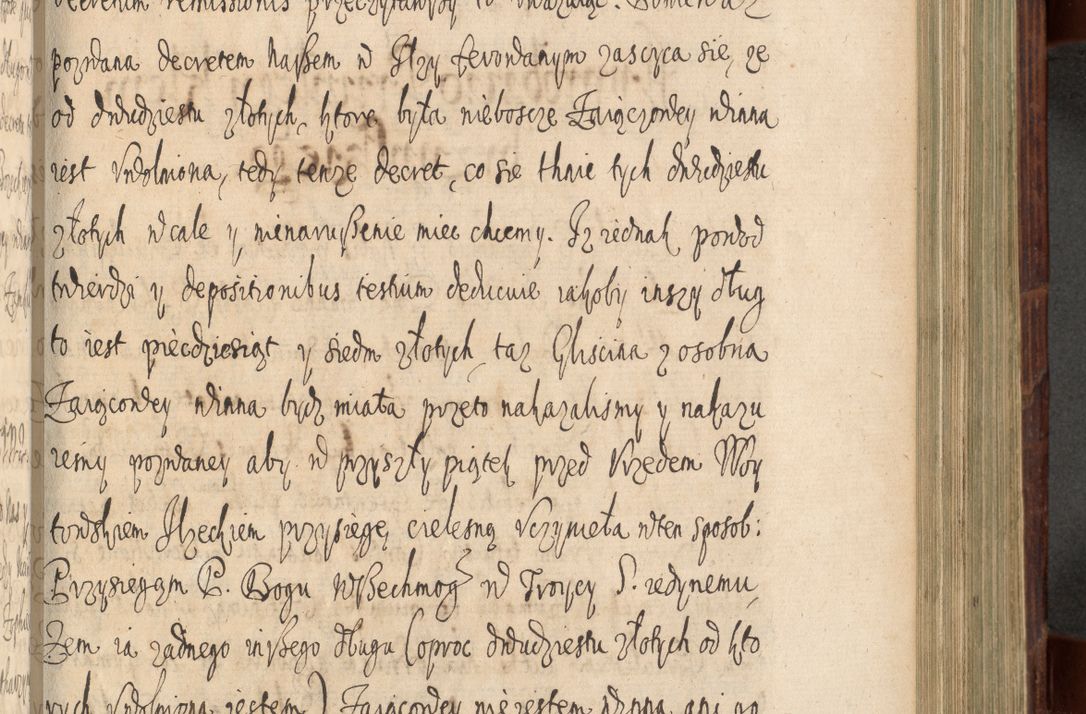 decretem remissionis przeczytawszy to
pozwana decretem naßem w Iłzy ferowanym zascyca się, ze
od dwudziestu złotych, ktore była nieboscze Zaiączowey winna
iest Vwolniona, tedy tenze decret, co sie tknie tych dwudziestu
złotych wcale y nienarußenie miec chcemy. Iz iednak powod
twierdzi y depositionibus testium deducuie iakoby inszy dług
to iest pięcdziesiąt y siedm złotych taz Gliscina z osobna
Zaiącowey winna bydz miała przeto nakazalismy y nakazu
iemy pozwaney aby w przyszły piątek przed Vrzedem Woy
towskiem Ilzeckiem przysięgę cielesną Vczynieła wten sposob:
Przysiegam P. Bogu Wßechmog. w Troycy S. iedynemu,
Zem ia zadnego inßego długu (oproc dwudziestu złotych od kto
rych Vwolniona iestem) Zaiącowey nie iestem winna, ani